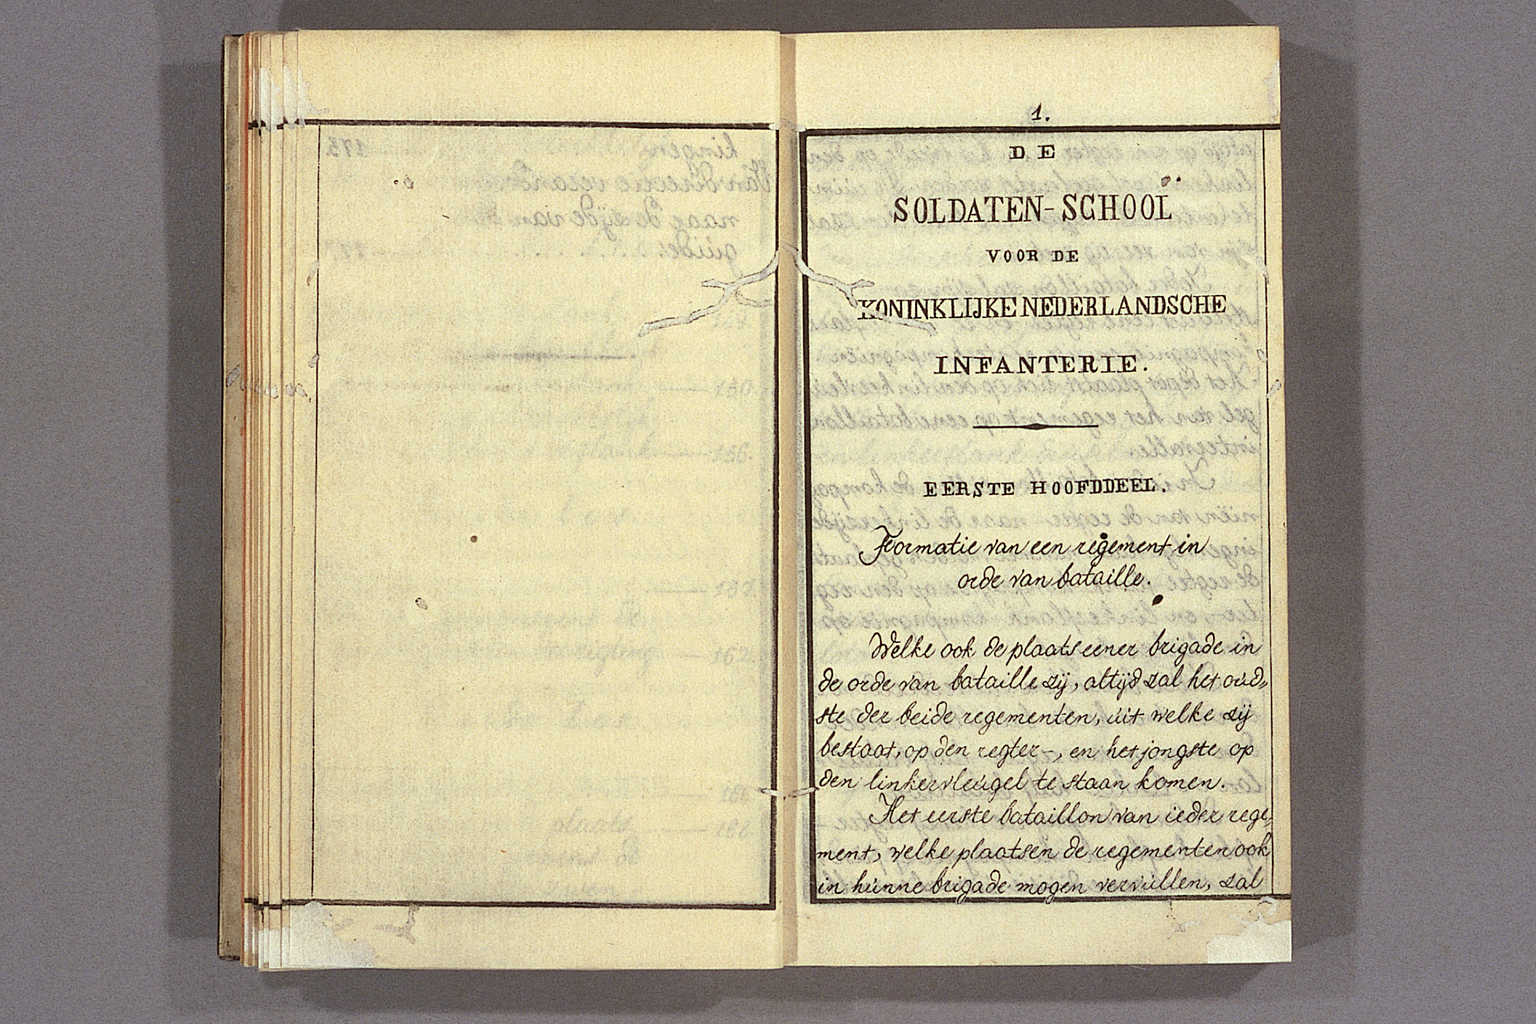 1.
DE
SOLDATEN-SCHOOL
VOOR DE
KONINKLIJKE NEDERLANDSCHE
INFANTERIE.
EERSTE HOOFDDEEL.
Formatie van een regement in
orde van bataille.
Welke ook de plaats eener brigade in
de orde van bataille zij, altijd zal het oud„
ste der beide regementen, uit welke zij
bestaat, op den regter-, en het jongste op
den linkervleugel te staan komen.
Het eerste bataillon van ieder rege„
ment, welke plaatsen de regementen ook
in hunne brigade mogen vervullen, zal